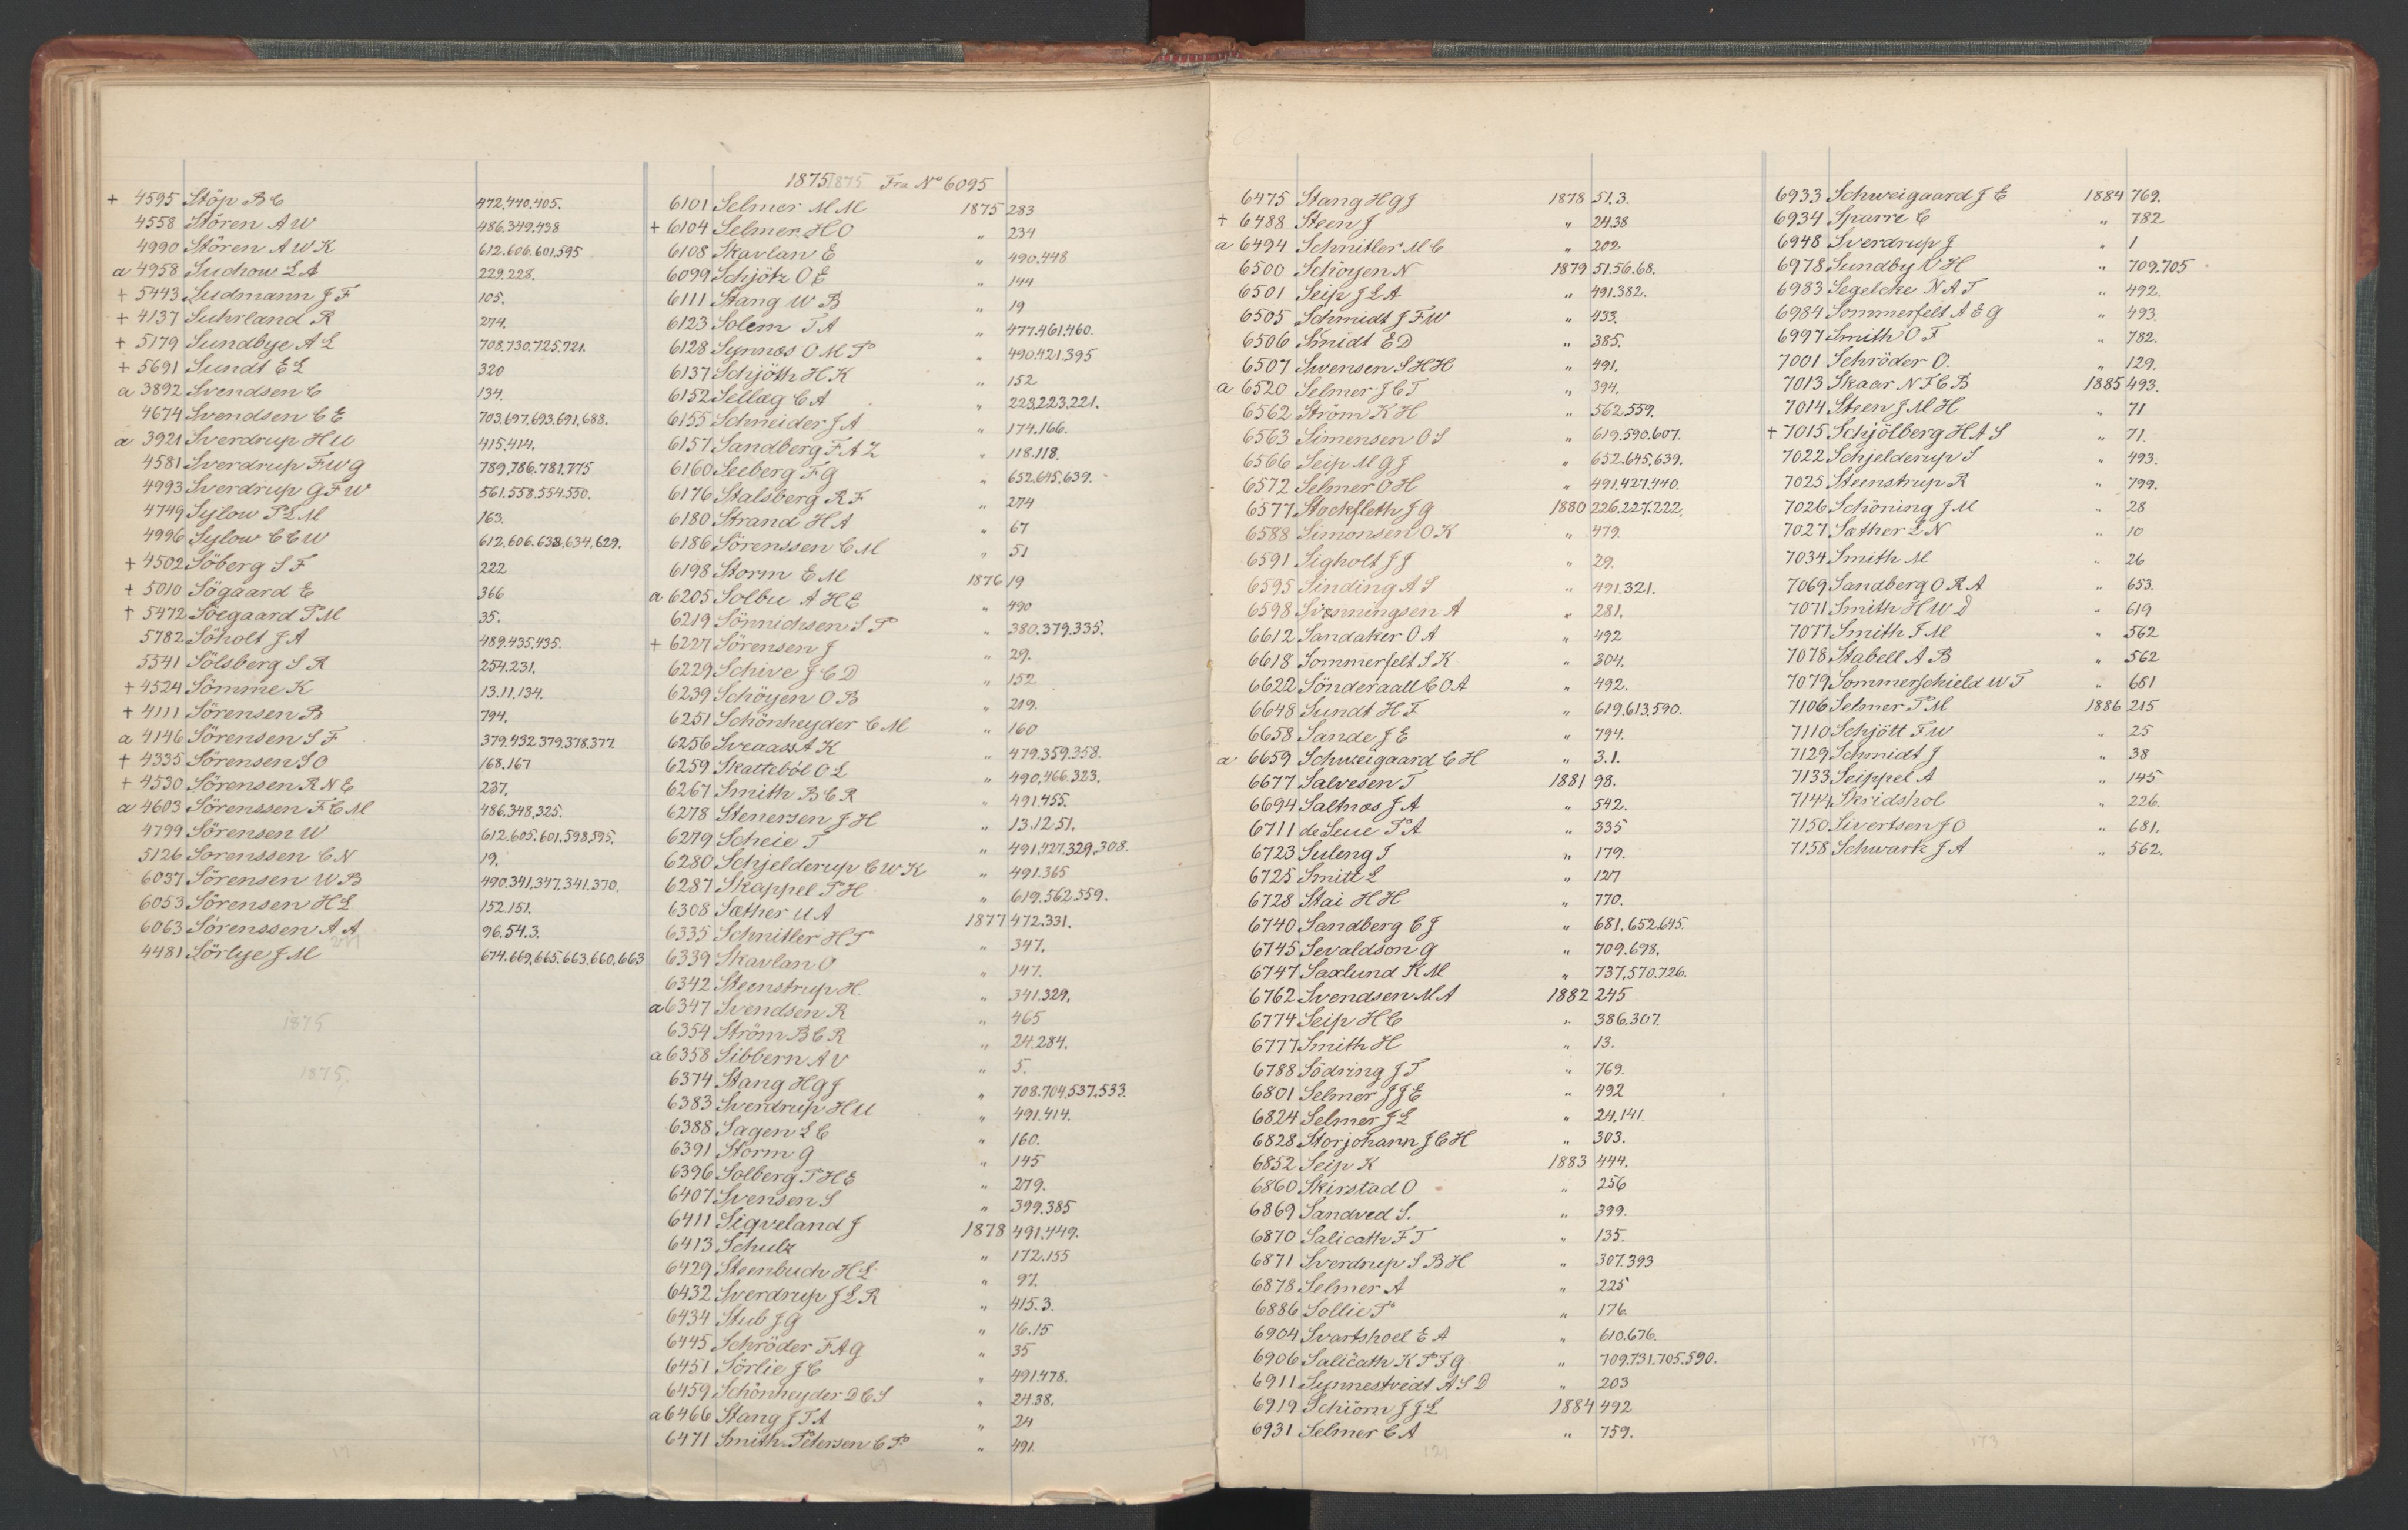 + 4595 Stöp B C 472.440.405.
4558 Stören A W 486.349.438
4990 Stören A W K 612.606.601.595
a 4958 Suchow L A 229.228.
+ 5443 Sudmann J F 105.
+ 4137 Suhrland R 274.
+ 5179 Sundbye A L 708.730.725.721.
+ 5691 Sundt E L 320
a 3892 Svendsen C 134.
4674 Svendsen C E 703.697.693.691.688.
a 3921 Sverdrup H U 415.414.
4581 Sverdrup F W G 789.786.781.775
4993 Sverdrup G F W 561.558.554.550.
4749 Sylow P L M 163.
4996 Sylow C C W 612.606.638.634.629.
+ 4502 Söberg S F 222
+ 5010 Sögaard E 366
+ 5472 Söegaard P M 35.
5782 Söholt J A 489.435.435.
5541 Sölsberg S R 254.231.
+ 4524 Sömme K 13.11.134.
+ 4111 Sörensen B 794.
a 4146 Sörensen S F 379.432.379.378.377.
+ 4335 Sörensen S O 168.167
+ 4530 Sörensen R N E 237.
a 4603 Sörenssen F C M 486.348.325.
4799 Sörensen W 612.605.601.598.595.
5126 Sorenssen C N 19.
6037 Sörensen W B 490.341.347.341.370.
6053 Sörensen H L 152.151.
6063 Sörenssen A A 96.54.3.
4481 Sörlye J M 674.669.665.663.660.663
1875
1875
1875 1875 Fra No 6095
6101 Selmer M M 1875 283
+ 6104 Selmer H O " 234
6108 Skavlan E " 490.448
6099 Schjötz O E " 144
6111 Stang W B " 19
6123 Solem T A " 477.461.460.
6128 Synnæs O M P " 490.421.395
6137 Schjöth H K " 152
6152 Sellæg C A " 223.223.221.
6155 Schneider J A " 174.166.
6157 Sandberg F A L " 118.118.
6160 Seeberg F G " 652.645.639.
6176 Stalsberg R F " 274
6180 Strand H A " 67
6186 Sörenssen C M " 51
6198 Storm E M 1876 19
a 6205 Solbu A H E " 490
6219 Sönnichsen S P " 380.379.335.
+ 6227 Sörensen J " 29.
6229 Schive J C D " 152
6239 Schöyen O B " 219.
6251 Schönheyder C M " 160
6256 Sveaass A K " 479.359.358.
6259 Skatteböl O L " 490.466.323.
6267 Smith B C R " 491.455.
6278 Stenersen J H " 13.12.51.
6279 Scheie T " 491.427.329.308.
6280 Schjelderup C W K " 491.365
6287 Skappel P H " 619.562.559.
6308 Sæther U A 1877 472.331.
6335 Schnitler H P " 347.
6339 Skavlan O " 147.
6342 Steenstrup H. " 341.329.
a 6347 Svendsen R " 465
6354 Ström B C R " 24.284.
a 6358 Sibbern A V " 5.
6374 Stang H G J " 708.704.537.533.
6383 Sverdrup H U " 491.414.
6388 Sagen L C " 160.
6391 Storm G " 145
6396 Solberg P H E " 279.
6407 Svensen S " 399.385
6411 Sigveland J 1878 491.449.
6413 Schulz " 172.155
6429 Steenbuch H L " 97.
6432 Sverdrup J L R " 415.3.
6434 Stub J G " 16.15
6445 Schröder F A G " 35
6451 Sörlie J C " 491.478.
6459 Schönheyder D C S " 24.38.
a 6466 Stang J T A " 24
6471 Smith-Petersen C P " 491.
6475 Stang H G J 1878 51.3.
+ 6488 Steen J " 24.38
a 6494 Schnitler M C " 202.
6500 Schöyen N 1879 51.56.68.
6501 Seip J L A " 491.382.
6505 Schmidt J F W " 433.
6506 Smidt E D " 385.
6507 Swensen S H H " 491.
a 6520 Selmer J C T " 394.
6562 Ström K H " 562.559.
6563 Simensen O S " 619.590.607.
6566 Seip M G J " 652.645.639.
6572 Selmer O H " 491.427.440.
6577 Stockfleth J G 1880 226.227.222.
6588 Simonsen O K " 479.
6591 Sigholt J J " 29.
6595 Sinding A S " 491.321.
6598 Svenningsen A " 281.
6612 Sandaker O A " 492
6618 Sommerfelt S K " 304.
6622 Sönderaall C O A " 492.
6648 Sundt H F " 619.613.590.
6658 Sande J E " 794.
a 6659 Schweigaard C H " 3.1.
6677 Salvesen T 1881 98.
6694 Saltnæs J A " 542.
6711 de Seue P A " 335
6723 Suleng T " 179.
6725 Smitt L " 127
6728 Stai H H " 770.
6740 Sandberg C J " 681.652.645.
6745 Sevaldson G " 709.698.
6747 Saxlund K M " 737.570.726.
6762 Svendsen M A 1882 245
6774 Seip H C " 386.307.
6777 Smith H " 13.
6788 Södring J T " 769.
6801 Selmer J J E " 492
6824 Selmer J L " 24.141.
6828 Storjohann J C H " 303.
6852 Seip K 1883 444.
6860 Skirstad O " 256
6869 Sandved S. " 399.
6870 Salicath F T " 135.
6871 Sverdrup S B H " 307.393
6878 Selmer A " 225
6886 Sollie P " 176.
6904 Svartshoel E A " 610.676.
6906 Salicath K P F G " 709.731.705.590.
6911 Synnestvedt A S D " 203
6919 Schiörn J J L 1884 492
6931 Selmer C A " 759.
121
6933 Schweigaard J E 1884 769.
6934 Sparre C " 782
6948 Sverdrup J " 1
6978 Sundby V H " 709.705
6983 Segelcke N A T " 492.
6984 Sommerfelt A E G " 493.
6997 Smith O F " 782.
7001 Schröder O. " 129.
7013 Skaar N F C B 1885 493.
7014 Steen J M H " 71
+ 7015 Schjölberg H A S " 71.
7022 Schjelderup S " 493.
7025 Steenstrup R " 799.
7026 Schöning J M " 28
7027 Sæther L N " 10
7034 Smith M " 26
7069 Sandberg O R A " 653.
7071 Smith H W D " 619
7077 Smith J M " 562
7078 Stabell A B " 562
7079 Sommerschield W T " 681
7106 Selmer P M 1886 215
7110 Schjött F W " 25
7129 Schmidt J " 38
7133 Seippel A " 145
7144 Skridshol " 226.
7150 Sivertsen J O " 681.
7158 Schwartz J A " 562.
173